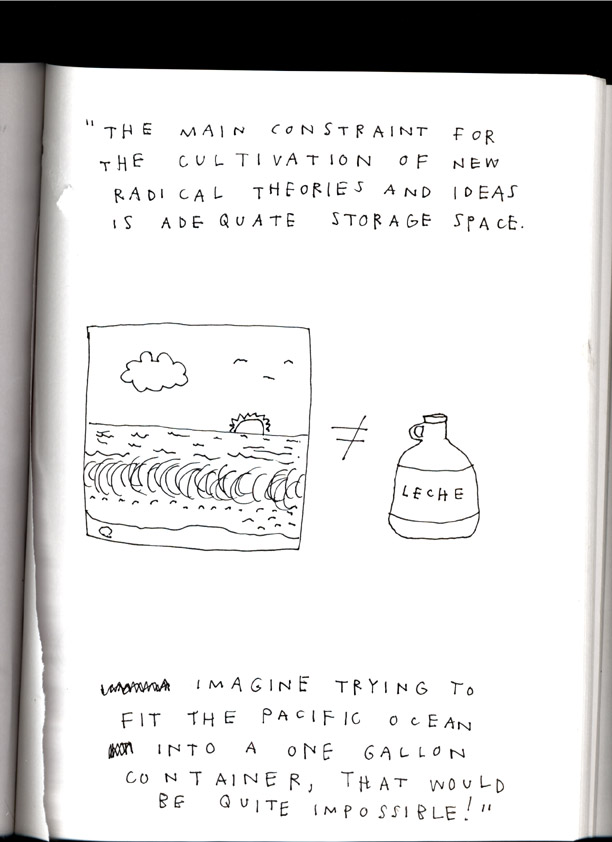 "THE MAIN CONSTRAINT FOR
THE CULTIVATION OF NEW
RADICAL THEORIES AND IDEAS
IS ADEQUATE STORAGE SPACE.
≠
LECHE
IMAGINE TRYING TO
FIT THE PACIFIC OCEAN
INTO A ONE GALLON
CONTAINER, THAT WOULD
BE QUITE IMPOSSIBLE!"